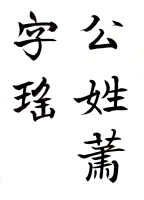 公姓蕭
字瑤